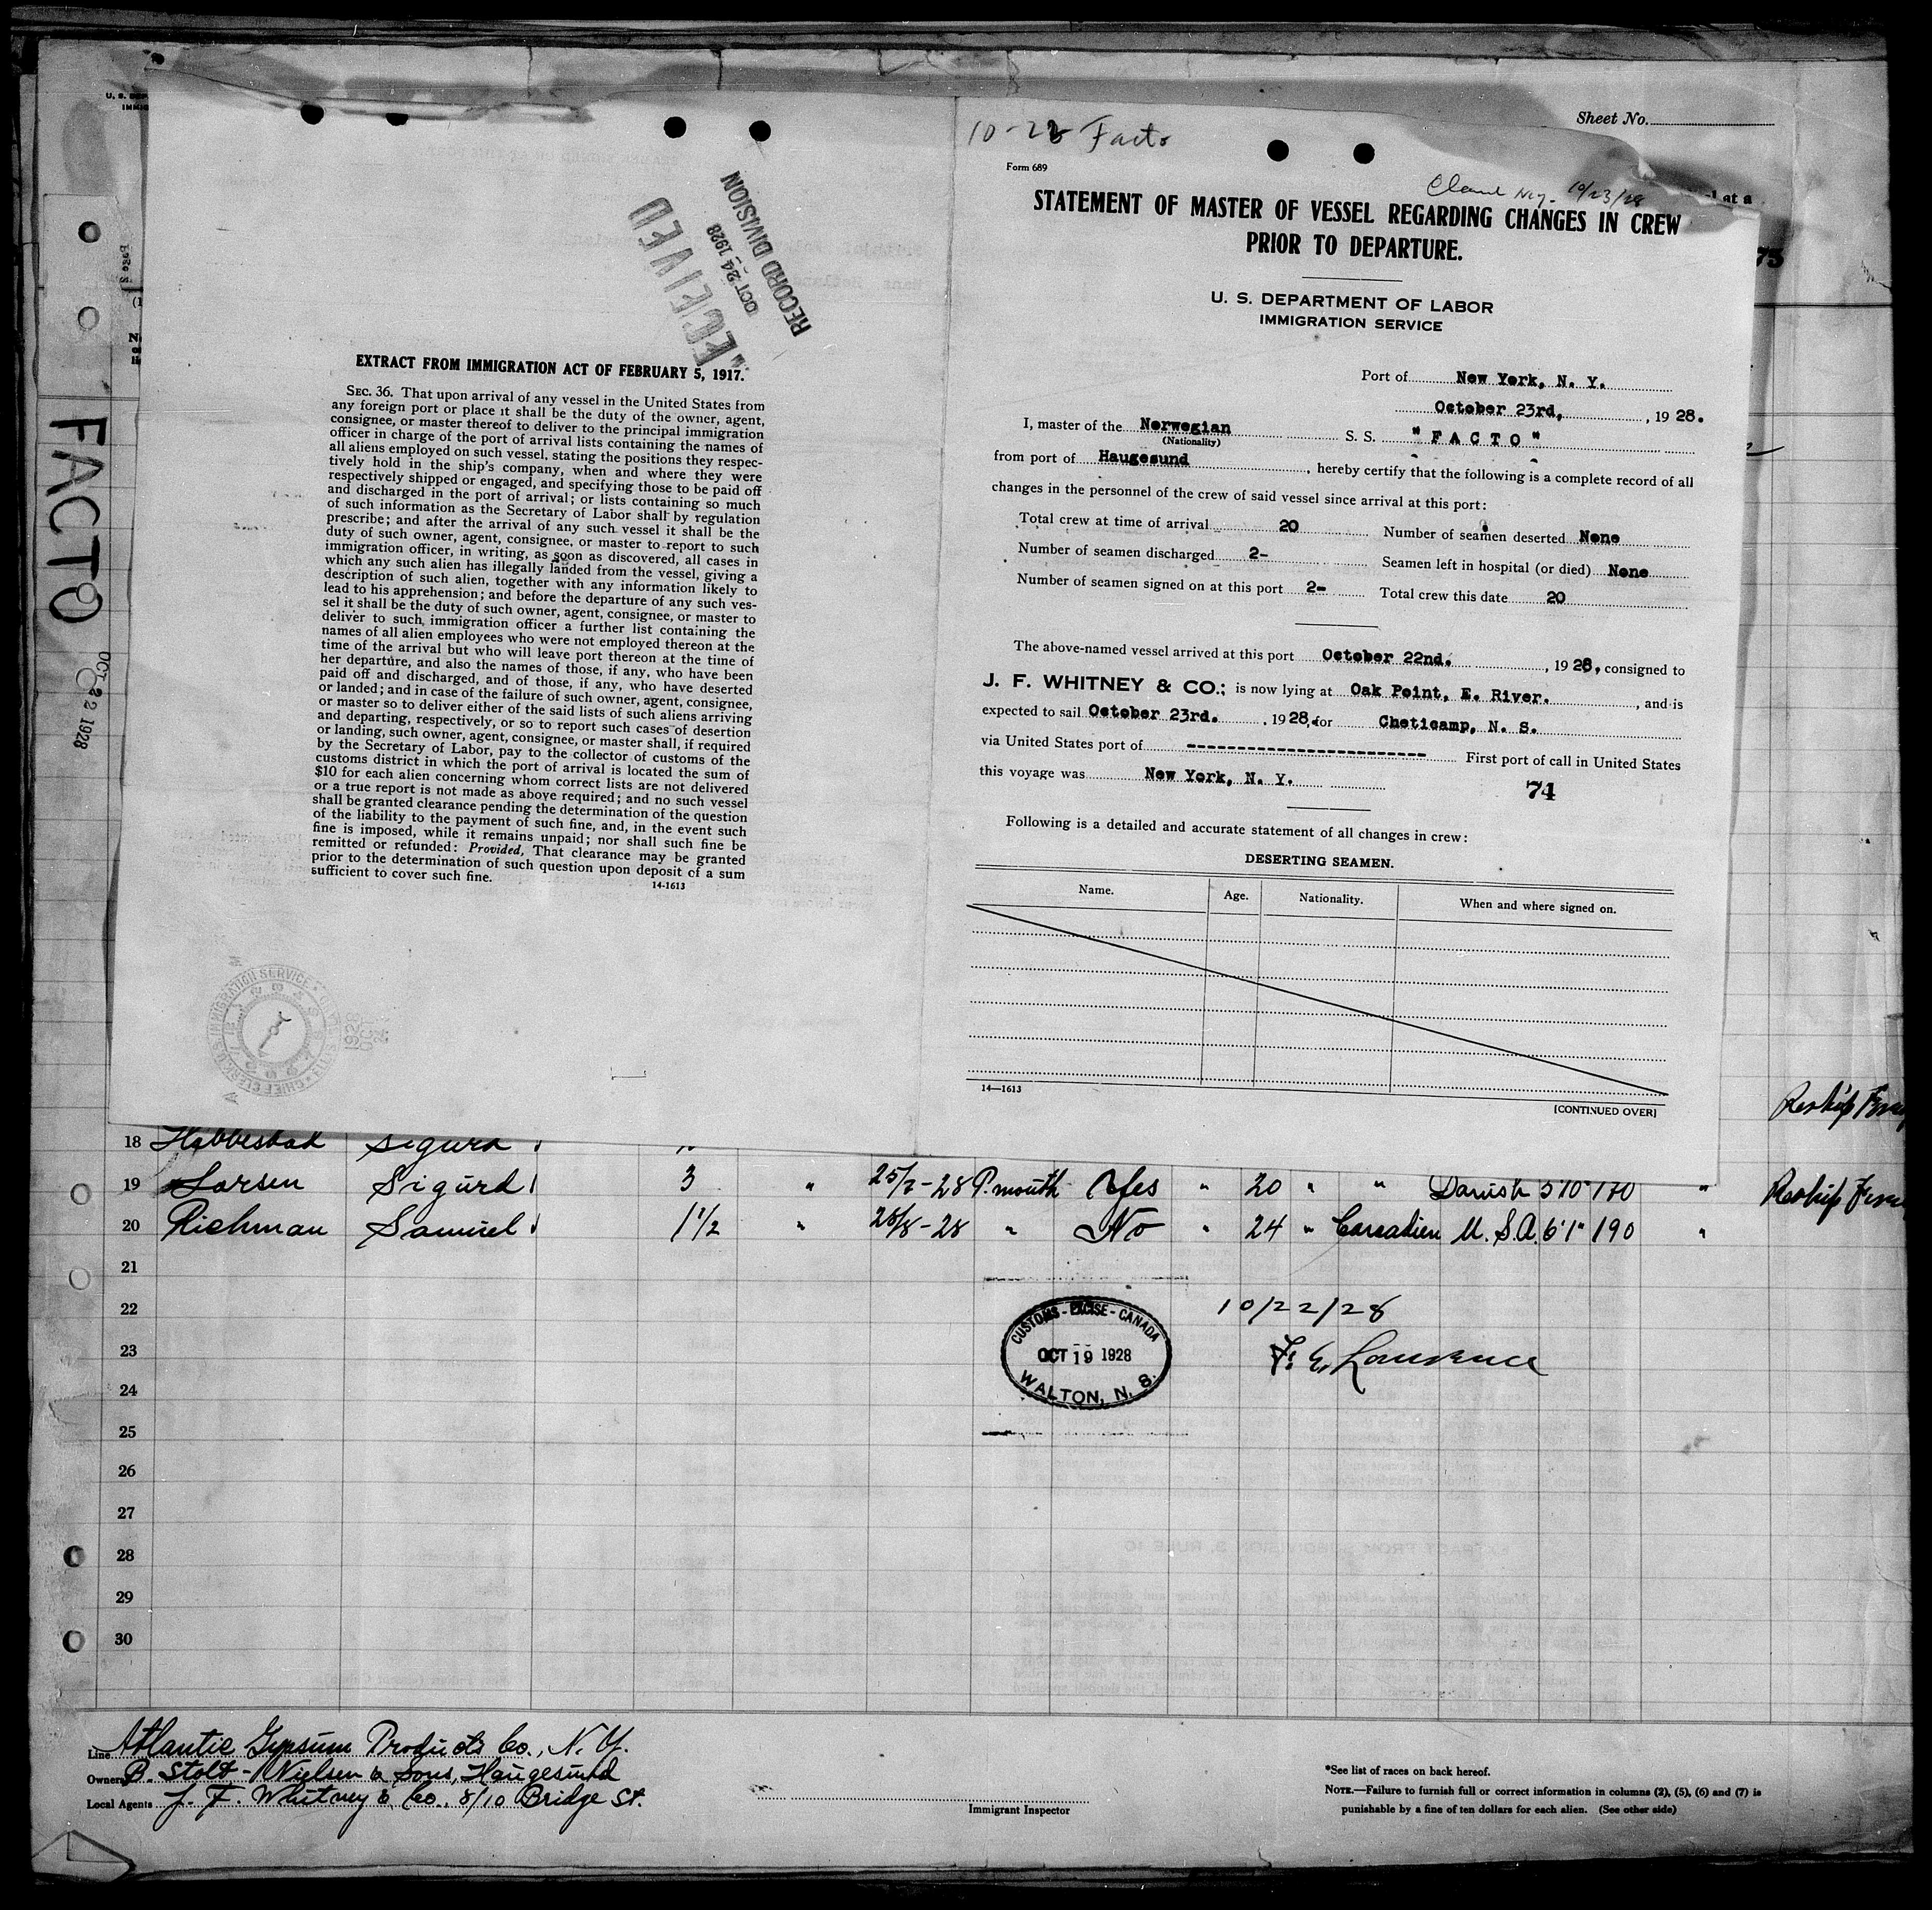 Sheet No.
U. S. DEP
IMMIG
FACTO
OCT 22 1928
RECEIVED
OCT 24 1928
RECORD DIVISION
EXTRACT FROM IMMIGRATION ACT OF FEBRUARY 5, 1917.
SEC. 36. That upon arrival of any vessel in the United States from
any foreign port or place it shall be the duty of the owner, agent,
consignee, or master thereof to deliver to the principal immigration
officer in charge of the port of arrival lists containing the names of
all aliens employed on such vessel, stating the positions they respec-
tively hold in the ship's company, when and where they were
respectively shipped or engaged, and specifying those to be paid off
and discharged in the port of arrival; or lists containing so much
of such information as the Secretary of Labor shall by regulation
prescribe; and after the arrival of any such vessel it shall be the
duty of such owner, agent, consignee, or master to report to such
immigration officer, in writing, as soon as discovered, all cases in
which any such alien has illegally landed from the vessel, giving a
description of such alien, together with any information likely to
lead to his apprehension; and before the departure of any such ves-
sel it shall be the duty of such owner, agent, consignee, or master to
deliver to such immigration officer a further list containing the
names of all alien employees who were not employed thereon at the
time of the arrival but who will leave port thereon at the time of
her departure, and also the names of those, if any, who have been
paid off and discharged, and of those, if any, who have deserted
or landed; and in case of the failure of such owner, agent, consignee,
or master so to deliver either of the said lists of such aliens arriving
and departing, respectively, or so to report such cases of desertion
or landing, such owner, agent, consignee, or master shall, if required
by the Secretary of Labor, pay to the collector of customs of the
customs district in which the port of arrival is located the sum of
$10 for each alien concerning whom correct lists are not delivered
or a true report is not made as above required; and no such vessel
shall be granted clearance pending the determination of the question
of the liability to the payment of such fine, and, in the event such
fine is imposed, while it remains unpaid; nor shall such fine be
remitted or refunded: Provided, That clearance may be granted
prior to the determination of such question upon deposit of a sum
sufficient to cover such fine.
14-1613
10-22 Facto
Form 689
10/23/28
at a
STATEMENT OF MASTER OF VESSEL REGARDING CHANGES IN CREW
PRIOR TO DEPARTURE.
U. S. DEPARTMENT OF LABOR
IMMIGRATION SERVICE
Port of New York, N. Y.
October 23rd, , 1928.
I, master of the Norwegian S. S. "FACTO"
(Nationality)
from port of Haugesund, hereby certify that the following is a complete record of all
changes in the personnel of the crew of said vessel since arrival at this port:
Total crew at time of arrival 20 Number of seamen deserted None
Number of seamen discharged 2- Seamen left in hospital (or died) None
Number of seamen signed on at this port 2- Total crew this date 20
The above-named vessel arrived at this port October 22nd. , 1928, consigned to
J. F. WHITNEY & CO.; is now lying at Oak Point, E. River. , and is
expected to sail October 23rd. , 1928, for Cheticamp, N. S.
via United States port of ----------------------- First port of call in United States
this voyage was New York, N. Y.
74
Following is a detailed and accurate statement of all changes in crew:
DESERTING SEAMEN.
Name. Age. Nationality. When and where signed on.
14—1613
[CONTINUED OVER]
18 Sigurd
19 Larsen Sigurd 3 " 25/7-28 P.mouth Yes " 20 " " Danish 5'10" 170 " Reship
20 Richman Samuel 1 1/2 " 28/8-28 " No " 24 " Canadien U.S.A. 6'1" 190 "
21
22
23
24
25
26
27
28
29
30
CUSTOMS - EXCISE - CANADA
OCT 19 1928
WALTON, N. S.
10/22/28
F. E. Lawrence
Line Atlantic Gypsum Products Co., N. Y.
Owners B. Stolt-Nielsen & Sons, Haugesund
Local Agents J. F. Whitney & Co., 8/10 Bridge St.
Immigrant Inspector
*See list of races on back hereof.
NOTE.—Failure to furnish full or correct information in columns (2), (5), (6) and (7) is
punishable by a fine of ten dollars for each alien. (See other side)